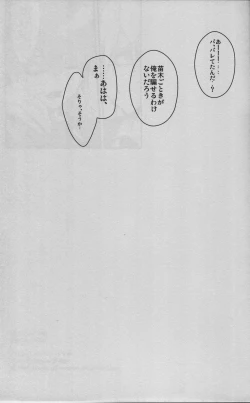 あー……
バ、バレてたんだ…?
苗木ごときが
俺を騙せるわけ
ないだろう
……あはは、
まぁ
そりゃ、そうか